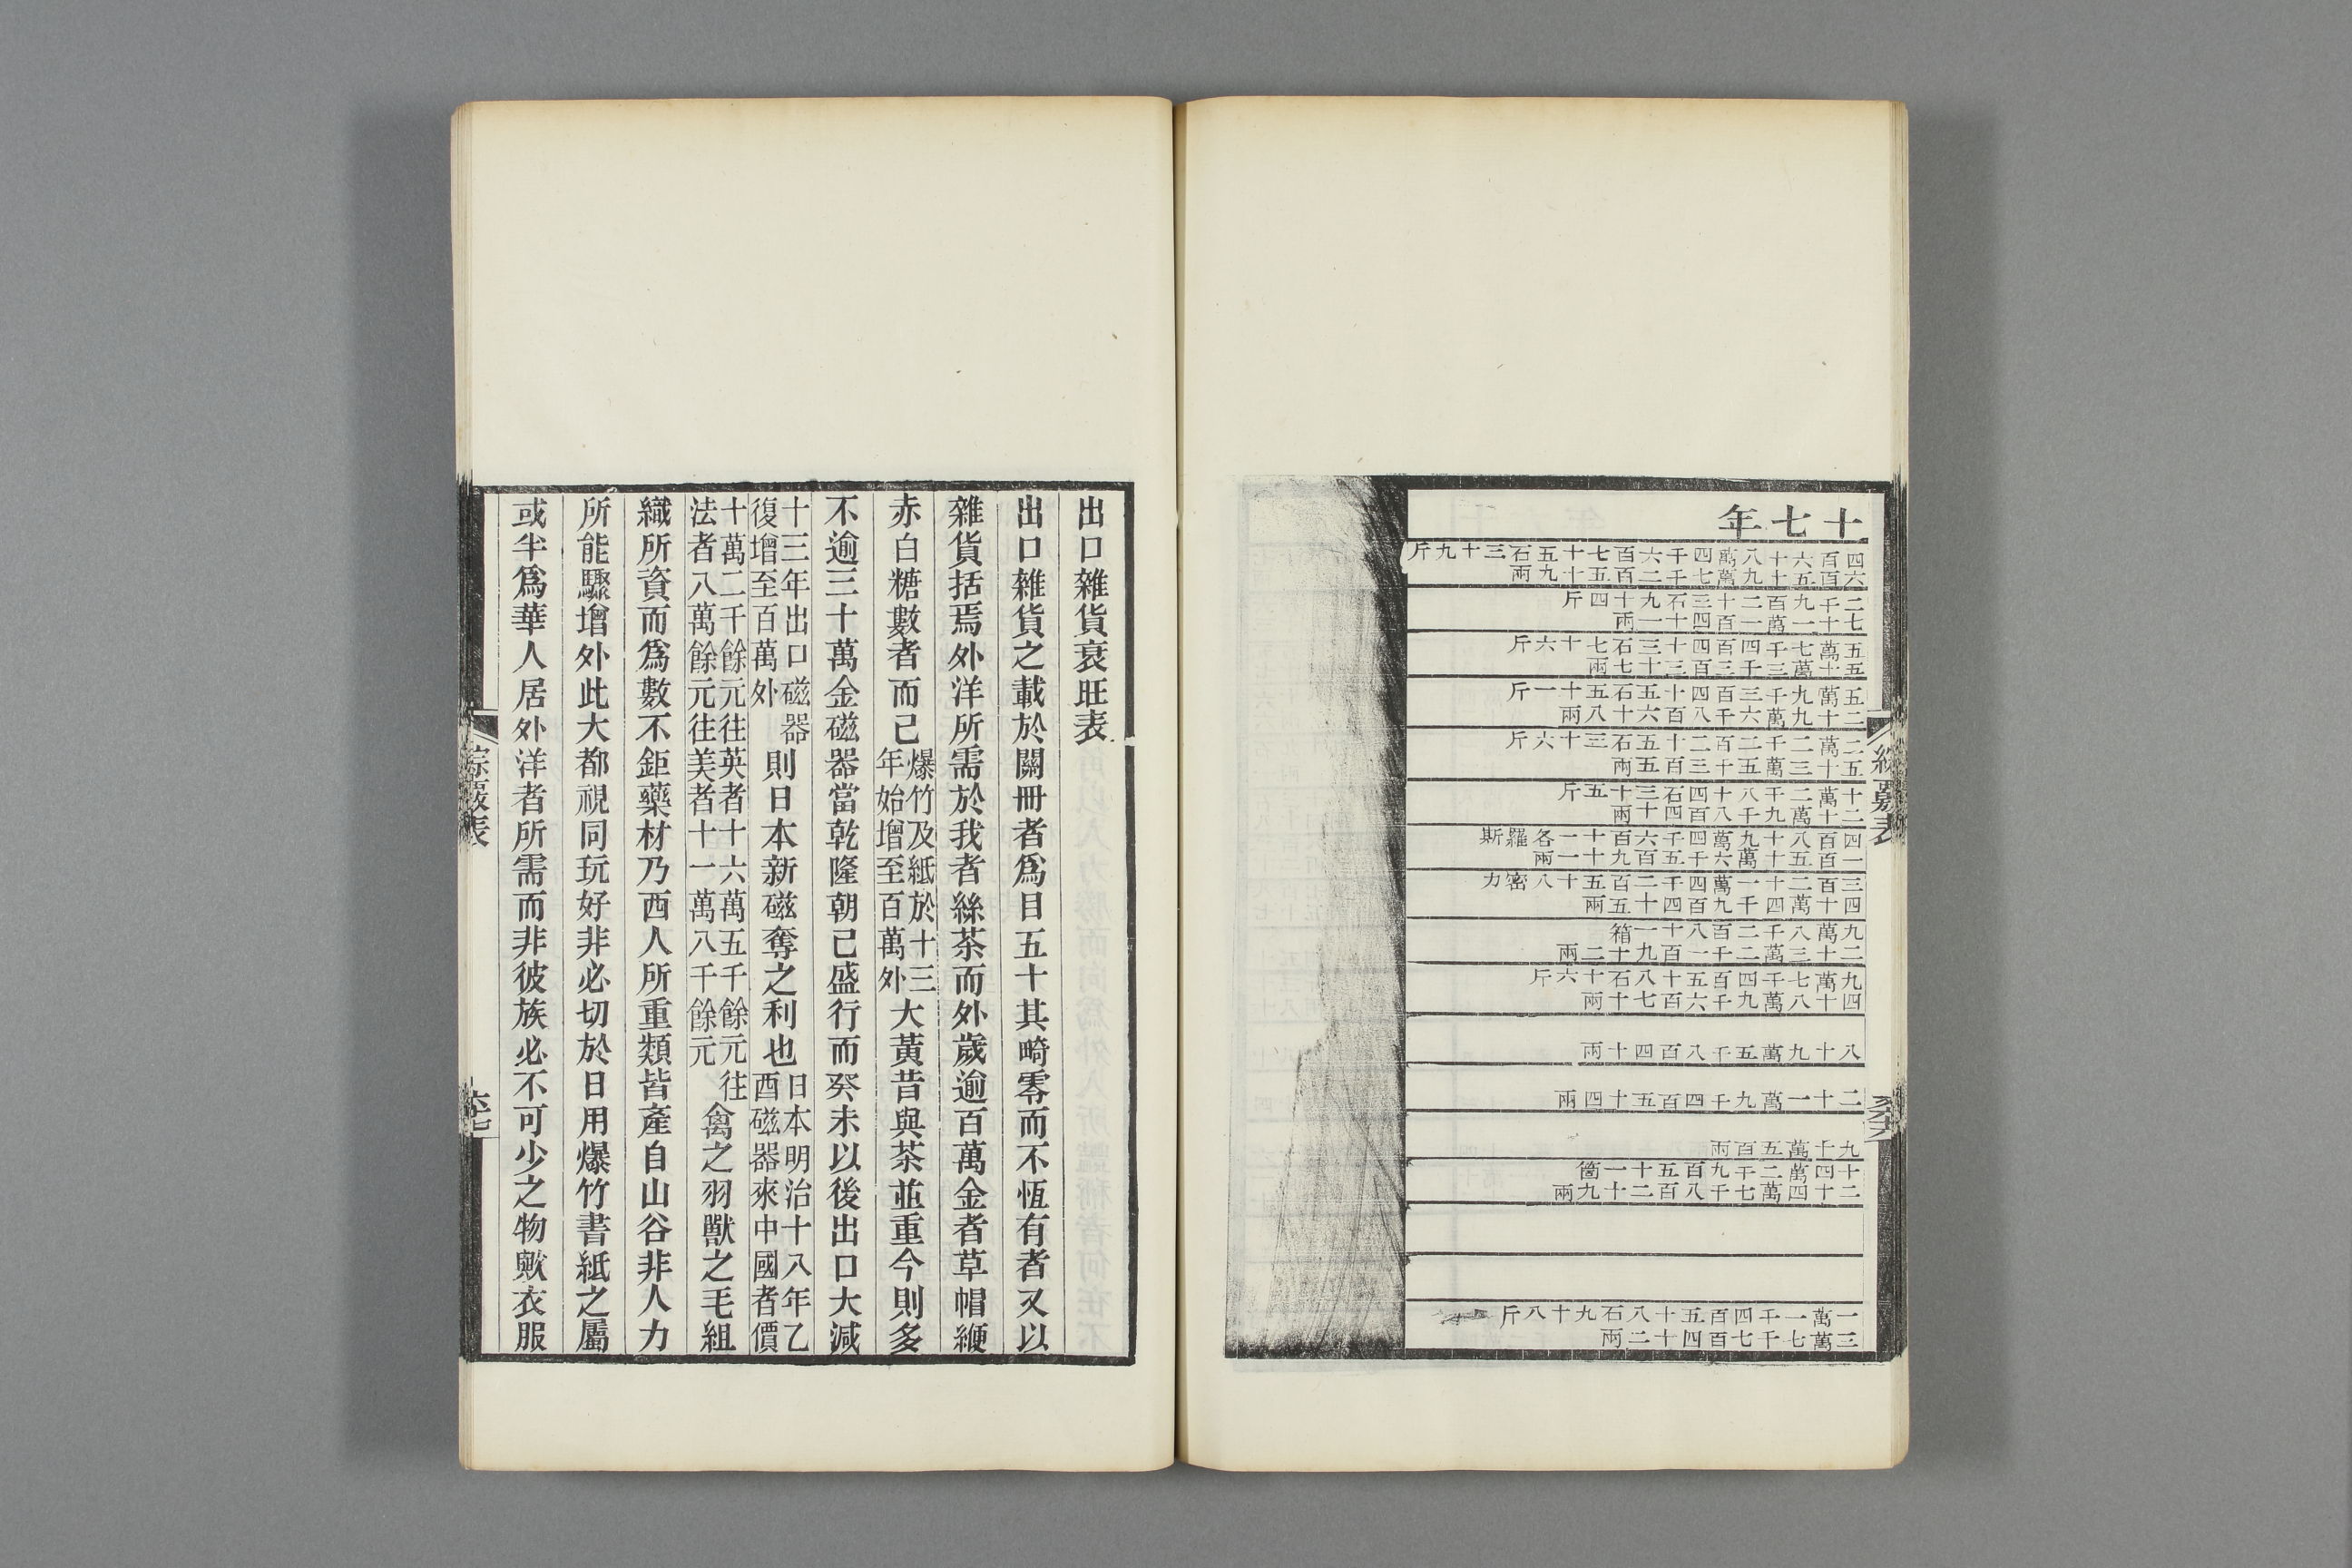 十七年
四百六十八萬四千六百七十五石三十九斤
六百五十九萬七千二百五十九兩
二千九百二十三石九十四斤
七十一萬一百四十一兩
五萬七千四百四十三石七十六斤
五十萬三千三百三十七兩
五萬九千三百四十五石五十一斤
二十九萬六千八百六十八兩
二萬二千二百二十五石三十六斤
五十三萬五千三百五兩
十萬二千八十四石十五斤
二十萬九千八百四十兩
四百八十九萬四千六百十一各羅斯
一百五十萬六千五百九十一兩
三百二十一萬四千二百五十八密力
四十萬四千九百四十五兩
九萬八千二百八十一箱
二十三萬二千一百九十二兩
九萬七千四百五十八石十六斤
四十八萬九千六百七十兩
八十九萬五千八百四十兩
二十一萬九千四百五十四兩
九十萬五百兩
十四萬二千九百五十一箇
二十四萬七千八百二十九兩
一萬一千四百五十八石九十八斤
三萬七千七百四十二兩
出口雜貨衰旺表
出口雜貨之載於關冊者爲目五十其畸零而不恆有者又以
雜貨括焉外洋所需於我者絲茶而外歲逾百萬金者草帽緶
赤白糖數者而已爆竹及紙於十三年始增至百萬外大黃昔與茶並重今則多
不逾三十萬金磁器當乾隆朝已盛行而癸未以後出口大減
十三年出口磁器復增至百萬外則日本新磁奪之利也日本明治十八年乙酉磁器來中國者價
十萬二千餘元往英者十六萬五千餘元往法者八萬餘元往美者十一萬八千餘元禽之羽獸之毛組
織所資而爲數不鉅藥材乃西人所重類皆產自山谷非人力
所能驟增外此大都視同玩好非必切於日用爆竹書紙之屬
或半爲華人居外洋者所需而非彼族必不可少之物歟衣服
綜覈表
六七